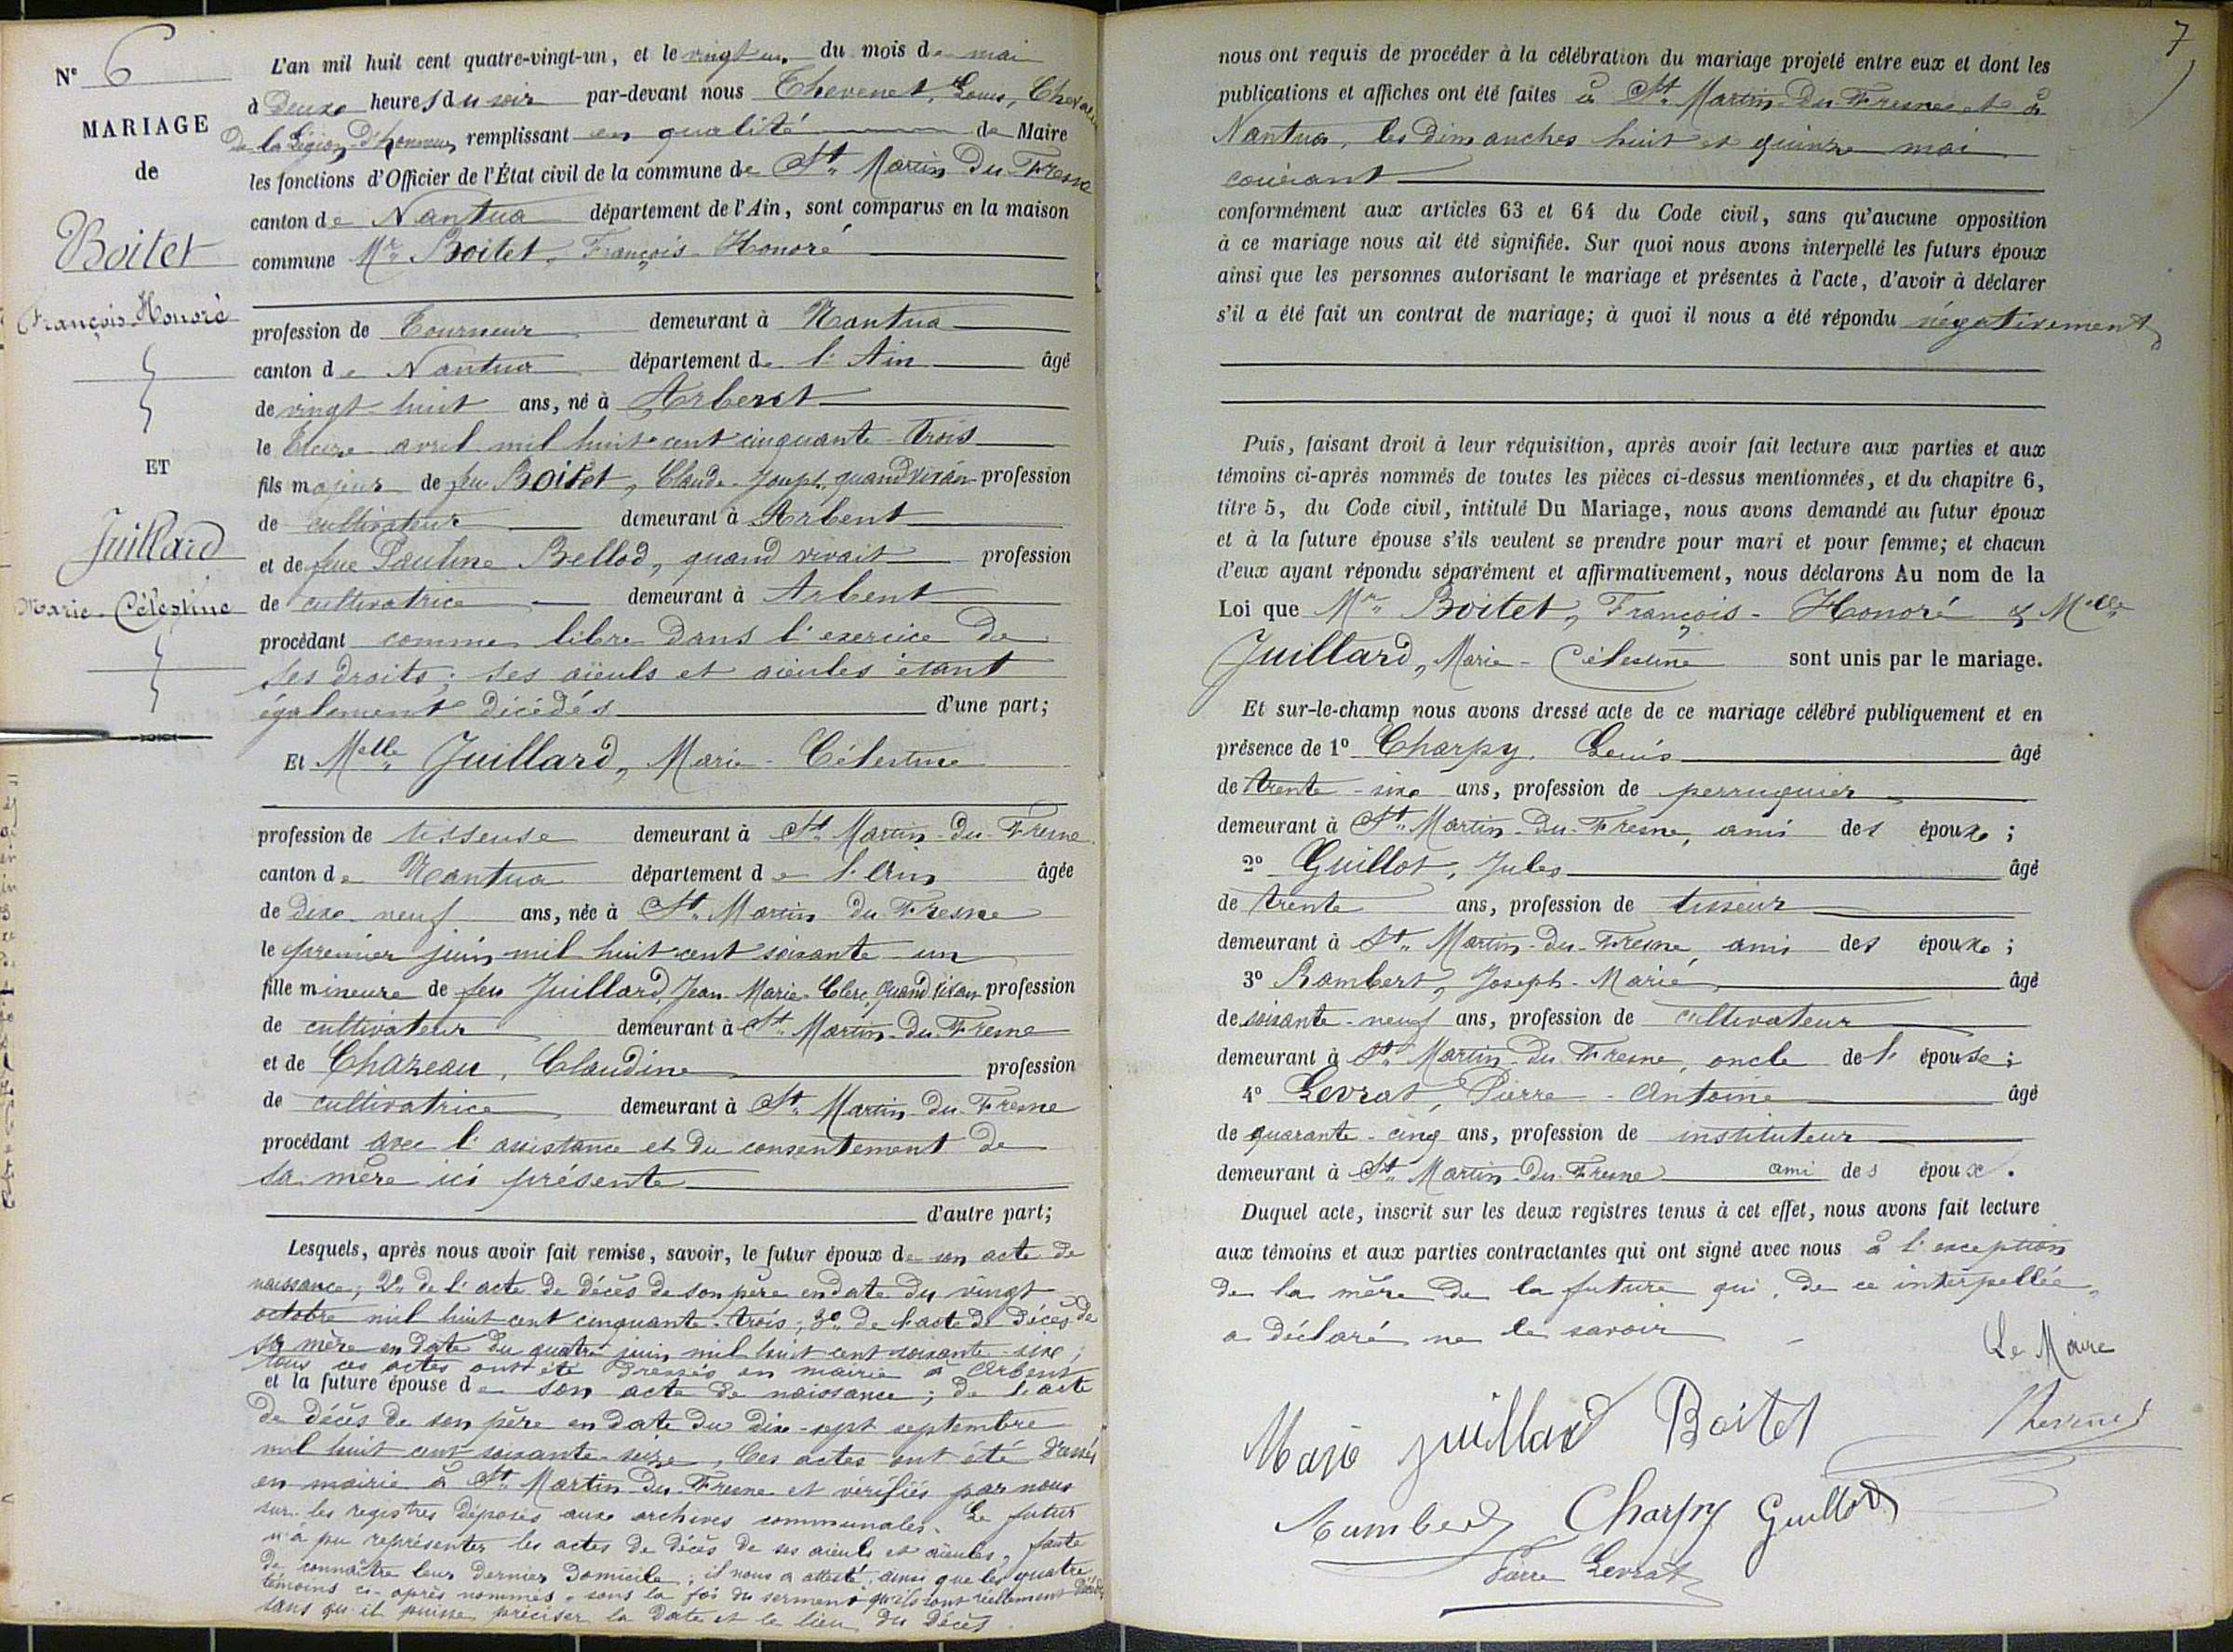 N° 6
MARIAGE
de
Boitet
François-Honoré
ET
Juillard
Marie-Célestine
L'an mil huit cent quatre-vingt-un, et le vingt un du mois de mai
à deux heures du soir par-devant nous Thevenet, Louis, Chevalier
de la Légion-d'honneur, remplissant en qualité de Maire
les fonctions d'Officier de l'État civil de la commune de St Martin-du-Fresne
canton de Nantua département de l'Ain, sont comparus en la maison
commune Mr Boitet, François-Honoré
profession de Tourneur demeurant à Nantua
canton de Nantua département de l'Ain âgé
de vingt-huit ans, né à Arbent
le treize avril mil huit cent cinquante-trois
fils majeur de feu Boitet, Claude-Joseph, quand vivait profession
de cultivateur demeurant à Arbent
et de feue Pauline Bellod, quand vivait profession
de cultivatrice demeurant à Arbent
procédant comme libre dans l'exercice de
ses droits; ses aïeuls et aïeules étant
également décédés d'une part;
Et Melle Juillard, Marie-Célestine
profession de tisseuse demeurant à St Martin-du-Fresne
canton de Nantua département de l'Ain âgée
de dix-neuf ans, née à St Martin-du-Fresne
le premier juin mil huit cent soixante-un
fille mineure de feu Juillard, Jean-Marie-Clerc, quand vivait profession
de cultivateur demeurant à St Martin-du-Fresne
et de Chazeau, Claudine profession
de cultivatrice demeurant à St Martin-du-Fresne
procédant avec l'assistance et du consentement de
sa mère ici présente
d'autre part;
Lesquels, après nous avoir fait remise, savoir, le futur époux de son acte de
naissance; 2° de l'acte de décès de son père en date du vingt
octobre mil huit cent cinquante-trois; 3° de l'acte de décès de
sa mère en date du quatre juin mil huit cent soixante-six;
tous ces actes ont été dressés en mairie à Arbent
et la future épouse de son acte de naissance; de l'acte
de décès de son père en date du dix-sept septembre
mil huit cent soixante-seize, Ces actes ont été dressés
en mairie à St Martin-du-Fresne et vérifiés par nous
sur les registres déposés aux archives communales. Le futur
n'a pu représenter les actes de décès de ses aïeuls et aïeules, faute
de connaître leur dernier domicile; il nous a attesté, ainsi que les quatre
témoins ci-après nommés, sous la foi du serment qu'ils sont réellement décédés
sans qu'il puisse préciser la date et le lieu du décès.
7
nous ont requis de procéder à la célébration du mariage projeté entre eux et dont les
publications et affiches ont été faites à St Martin-du-Fresne et à
Nantua, les dimanches huit et quinze mai
courant
conformément aux articles 63 et 64 du Code civil, sans qu'aucune opposition
à ce mariage nous ait été signifiée. Sur quoi nous avons interpellé les futurs époux
ainsi que les personnes autorisant le mariage et présentes à l'acte, d'avoir à déclarer
s'il a été fait un contrat de mariage; à quoi il nous a été répondu négativement
Puis, faisant droit à leur réquisition, après avoir fait lecture aux parties et aux
témoins ci-après nommés de toutes les pièces ci-dessus mentionnées, et du chapitre 6,
titre 5, du Code civil, intitulé Du Mariage, nous avons demandé au futur époux
et à la future épouse s'ils veulent se prendre pour mari et pour femme; et chacun
d'eux ayant répondu séparément et affirmativement, nous déclarons Au nom de la
Loi que Mr Boitet, François-Honoré & Melle
Juillard, Marie-Célestine sont unis par le mariage.
Et sur-le-champ nous avons dressé acte de ce mariage célébré publiquement et en
présence de 1° Charpy, Louis âgé
de trente-six ans, profession de perruquier
demeurant à St Martin-du-Fresne, ami des époux;
2° Guillot, Jules âgé
de trente ans, profession de tisseur
demeurant à St Martin-du-Fresne, ami des époux;
3° Rambert, Joseph-Marie âgé
de soixante-neuf ans, profession de cultivateur
demeurant à St Martin-du-Fresne, oncle de l'épouse;
4° Levrat, Pierre-Antoine âgé
de quarante-cinq ans, profession de instituteur
demeurant à St Martin-du-Fresne ami des époux.
Duquel acte, inscrit sur les deux registres tenus à cet effet, nous avons fait lecture
aux témoins et aux parties contractantes qui ont signé avec nous à l'exception
de la mère de la future qui, de ce interpellée,
a déclaré ne le savoir
Le Maire
Marie Juillard Boitet Thevenet
Rumbert Charpy Guillot
Pierre Levrat